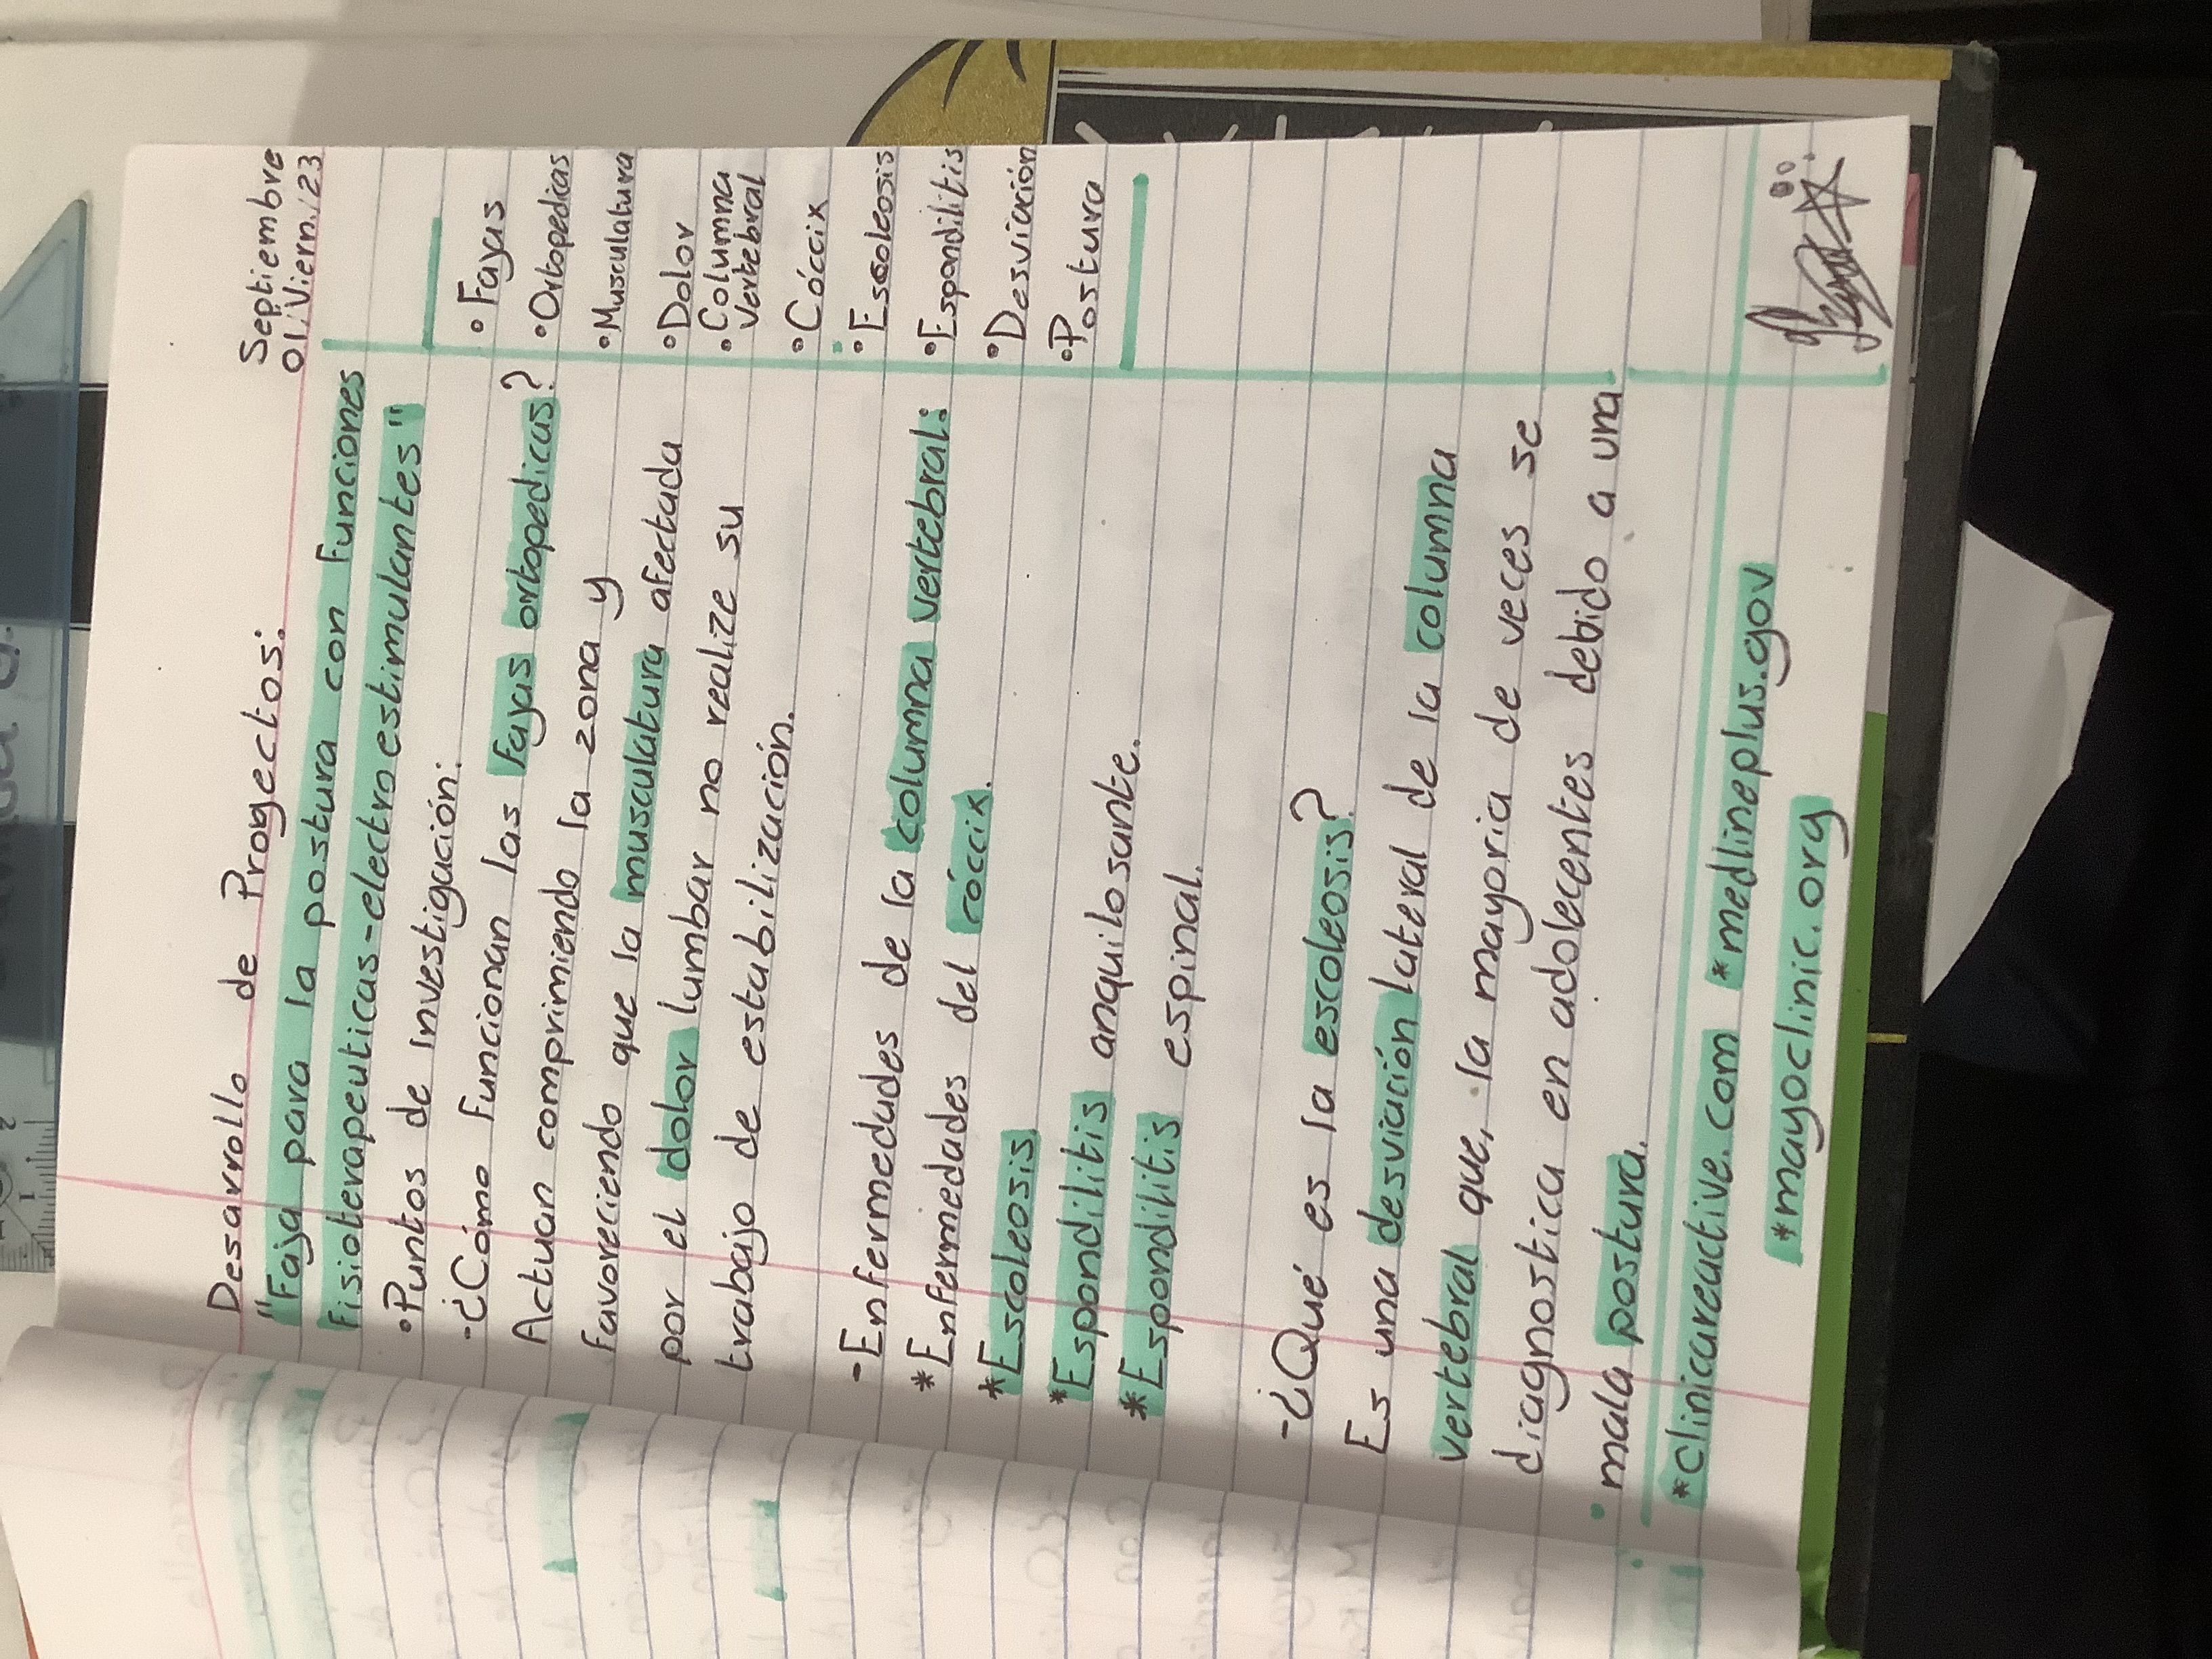 Septiembre
Desarrollo de Proyectos: 01/Viern./23
"Faja para la postura con funciones
fisioterapeuticas-electroestimulantes"
•Puntos de investigación:
-¿Cómo funcionan las fajas ortopedicas?
Actuan comprimiendo la zona y
favoreciendo que la musculatura afectada
por el dolor lumbar no realize su
trabajo de estabilización.
-Enfermedades de la columna vertebral:
*Enfermedades del cóccix.
*Escoleosis.
*Espondilitis anquilosante.
*Espondilitis espinal.
-¿Qué es la escoleosis?
Es una desviación lateral de la columna
vertebral que, la mayoria de veces se
diagnostica en adolecentes debido a una
mala postura.
•Fajas
•Ortopedicas
•Musculatura
•Dolor
•Columna
vertebral
•Cóccix
•Escoleosis
•Espondilitis
•Desviación
•Postura
*clinicareactive.com *medlineplus.gov
*mayoclinic.org